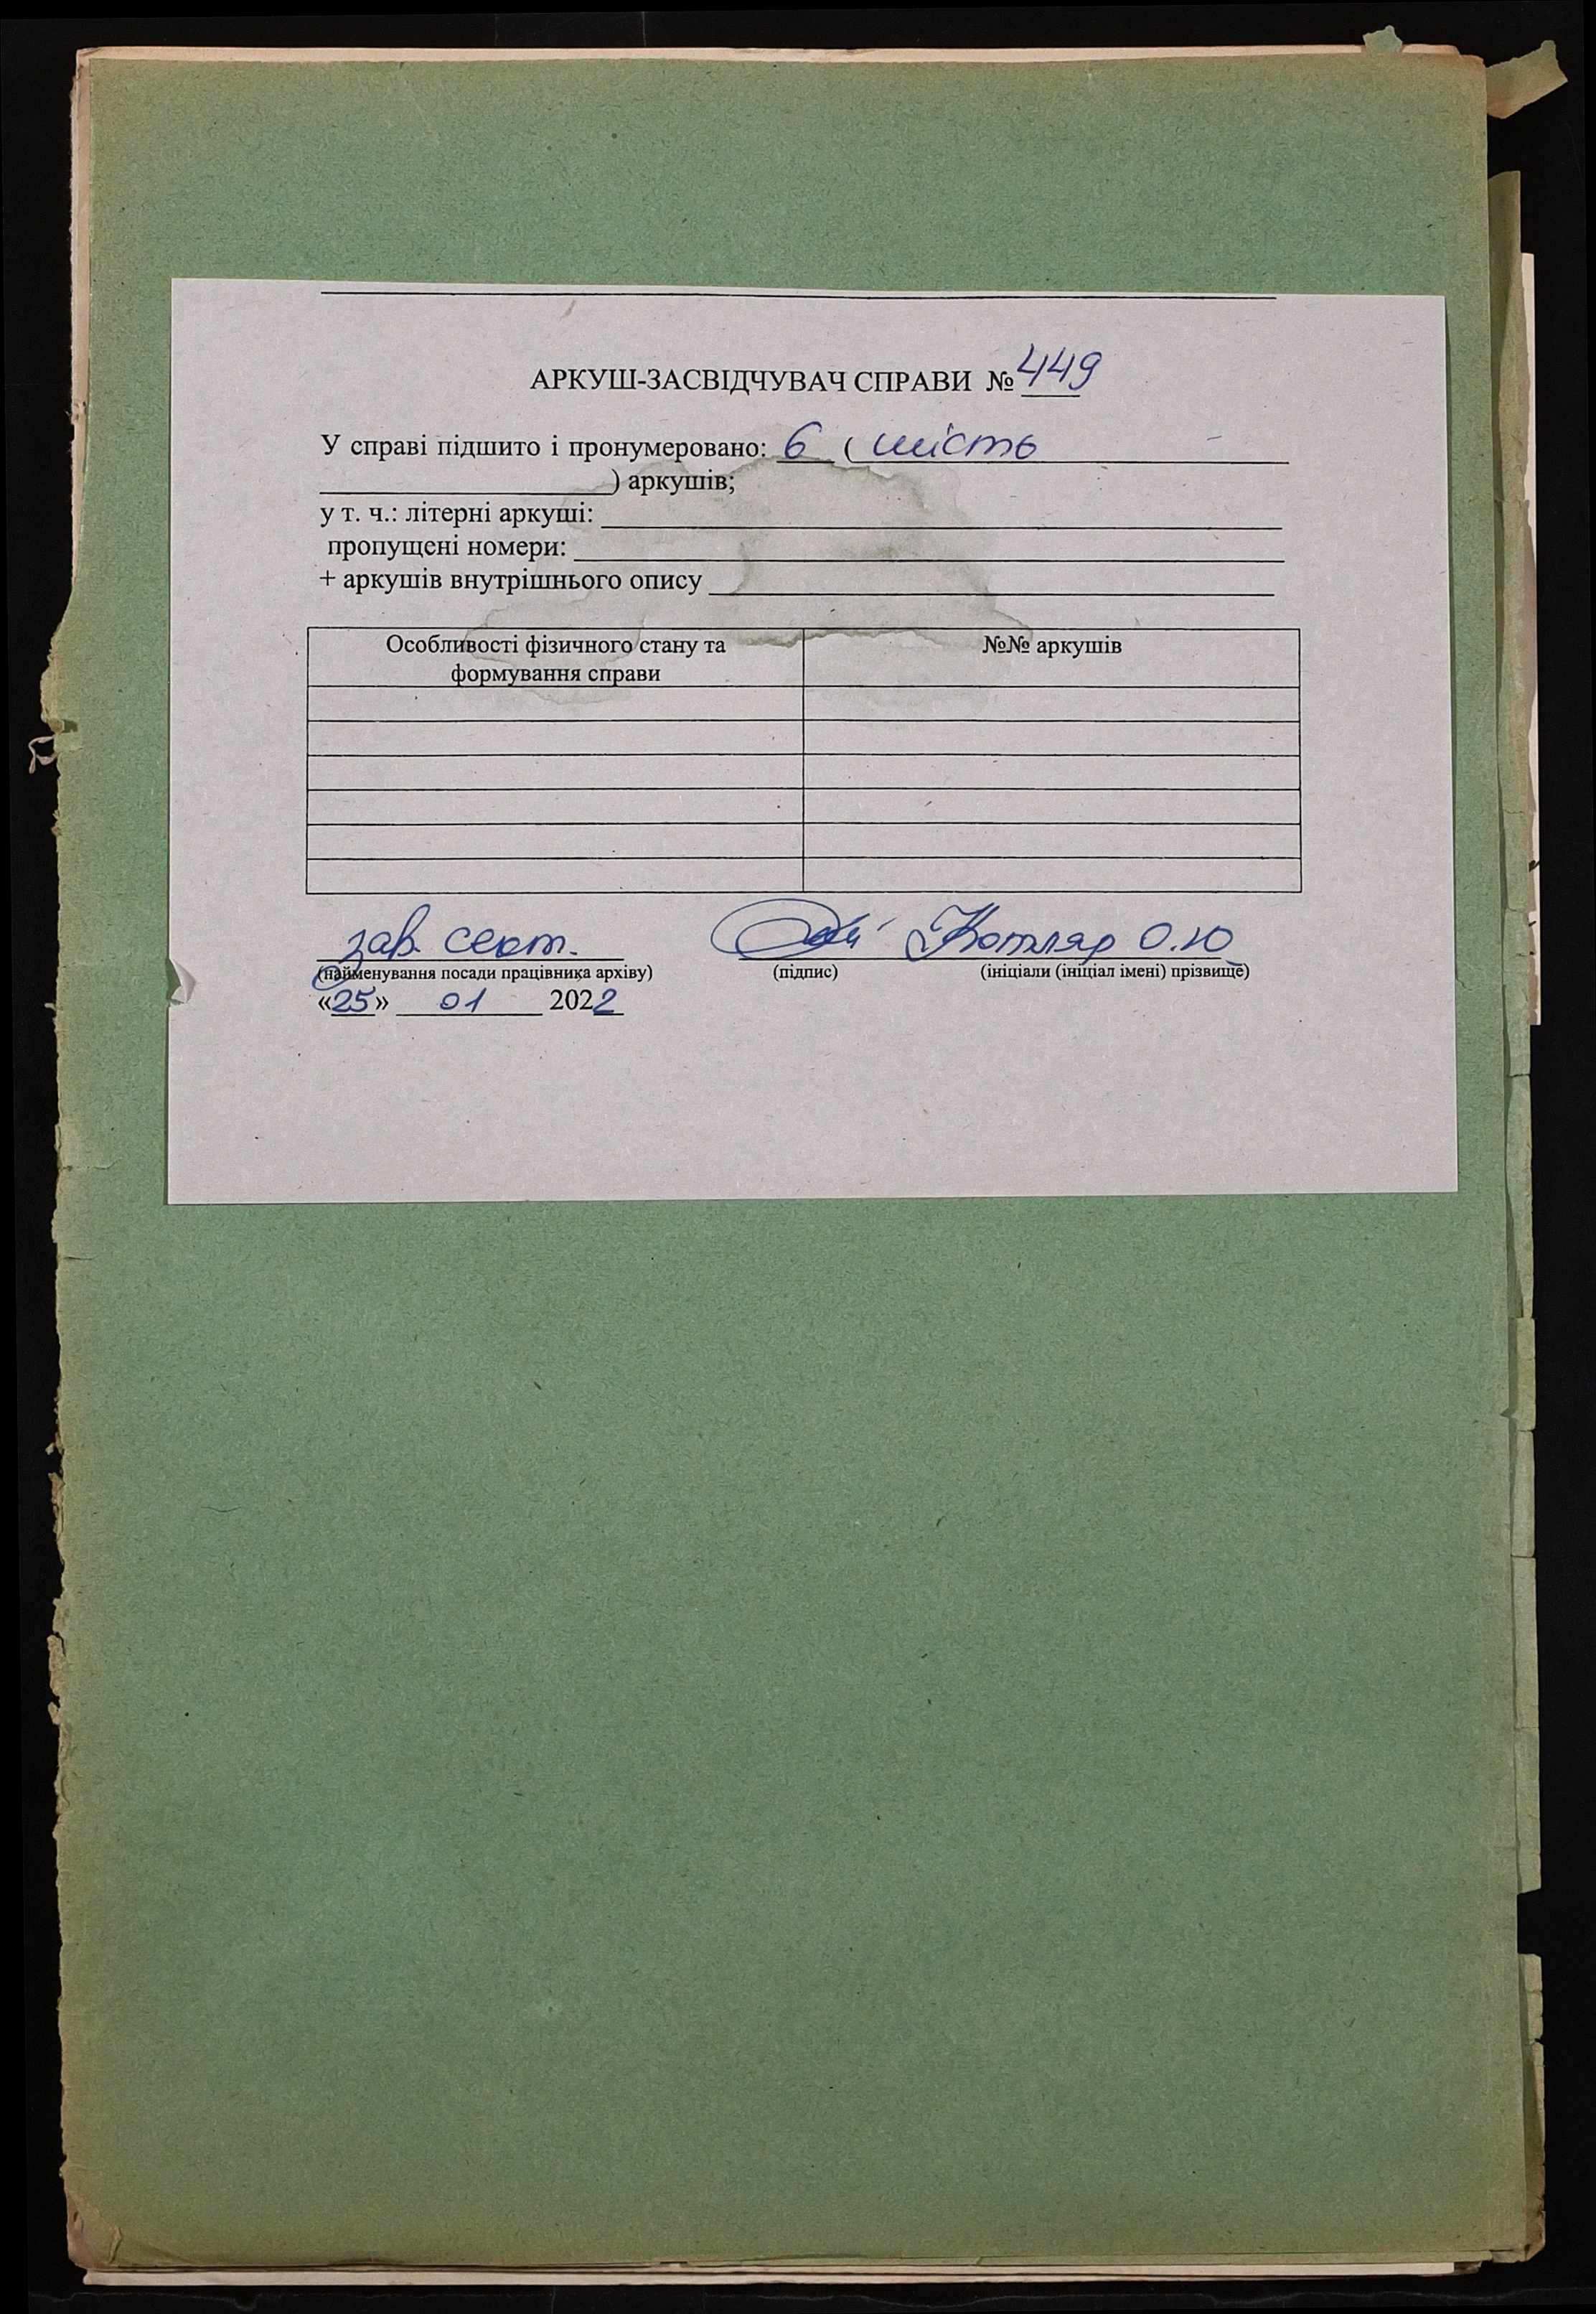 АРКУШ-ЗАСВІДЧУВАЧ СПРАВИ № 449
У справі підшито і пронумеровано: 6 ( шість
) аркушів;
у т. ч.: літерні аркуші:
пропущені номери:
+ аркушів внутрішнього опису
Особливості фізичного стану та
формування справи
№№ аркушів
зав. сект. Котляр О.Ю
(найменування посади працівника архіву) (підпис) (ініціали (ініціал імені) прізвище)
«25» 01 2022